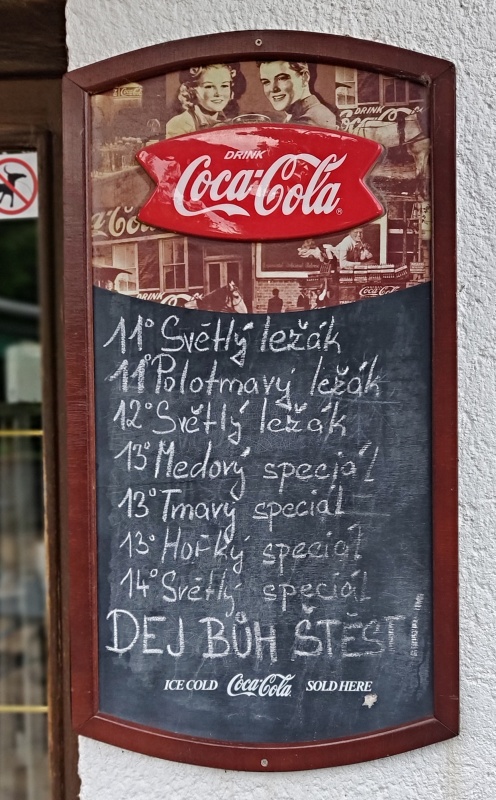 DRINK
Coca-Cola
DRINK
Coca-Cola
11° Světlý ležák
11° Polotmavý ležák
12° Světlý ležák
13° Medový speciál
13° Tmavý speciál
13° Hořký speciál
14° Světlý speciál
DEJ BŮH ŠTĚST
ICE COLD Coca-Cola SOLD HERE